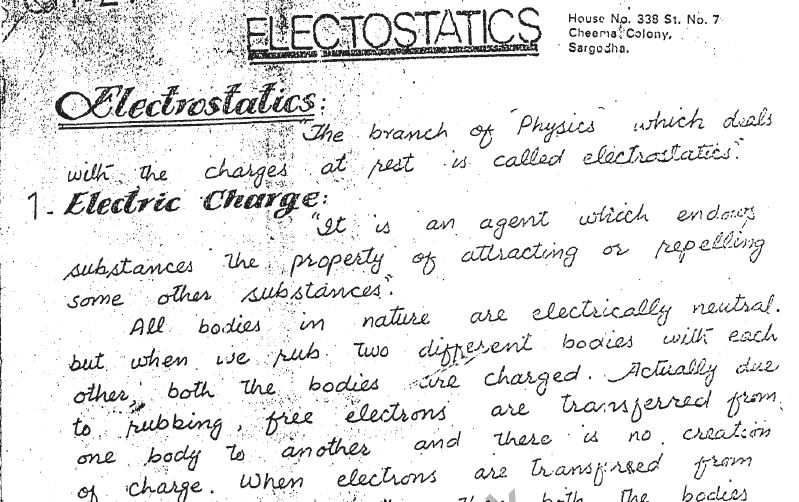 ELECTOSTATICS
House No. 338 St. No. 7
Cheema Colony,
Sargodha.
Electrostatics:
"The branch of "Physics" which deals
with the charges at rest is called electrostatics".
1- Electric Charge:
"It is an agent which endows
substances the property of attracting or repelling
some other substances".
All bodies in nature are electrically neutral.
but when we rub two different bodies with each
other, both the bodies are charged. Actually due
to rubbing, free electrons are transferred from
one body to another and there is no creation
of charge. When electrons are transfrred from
both the bodies